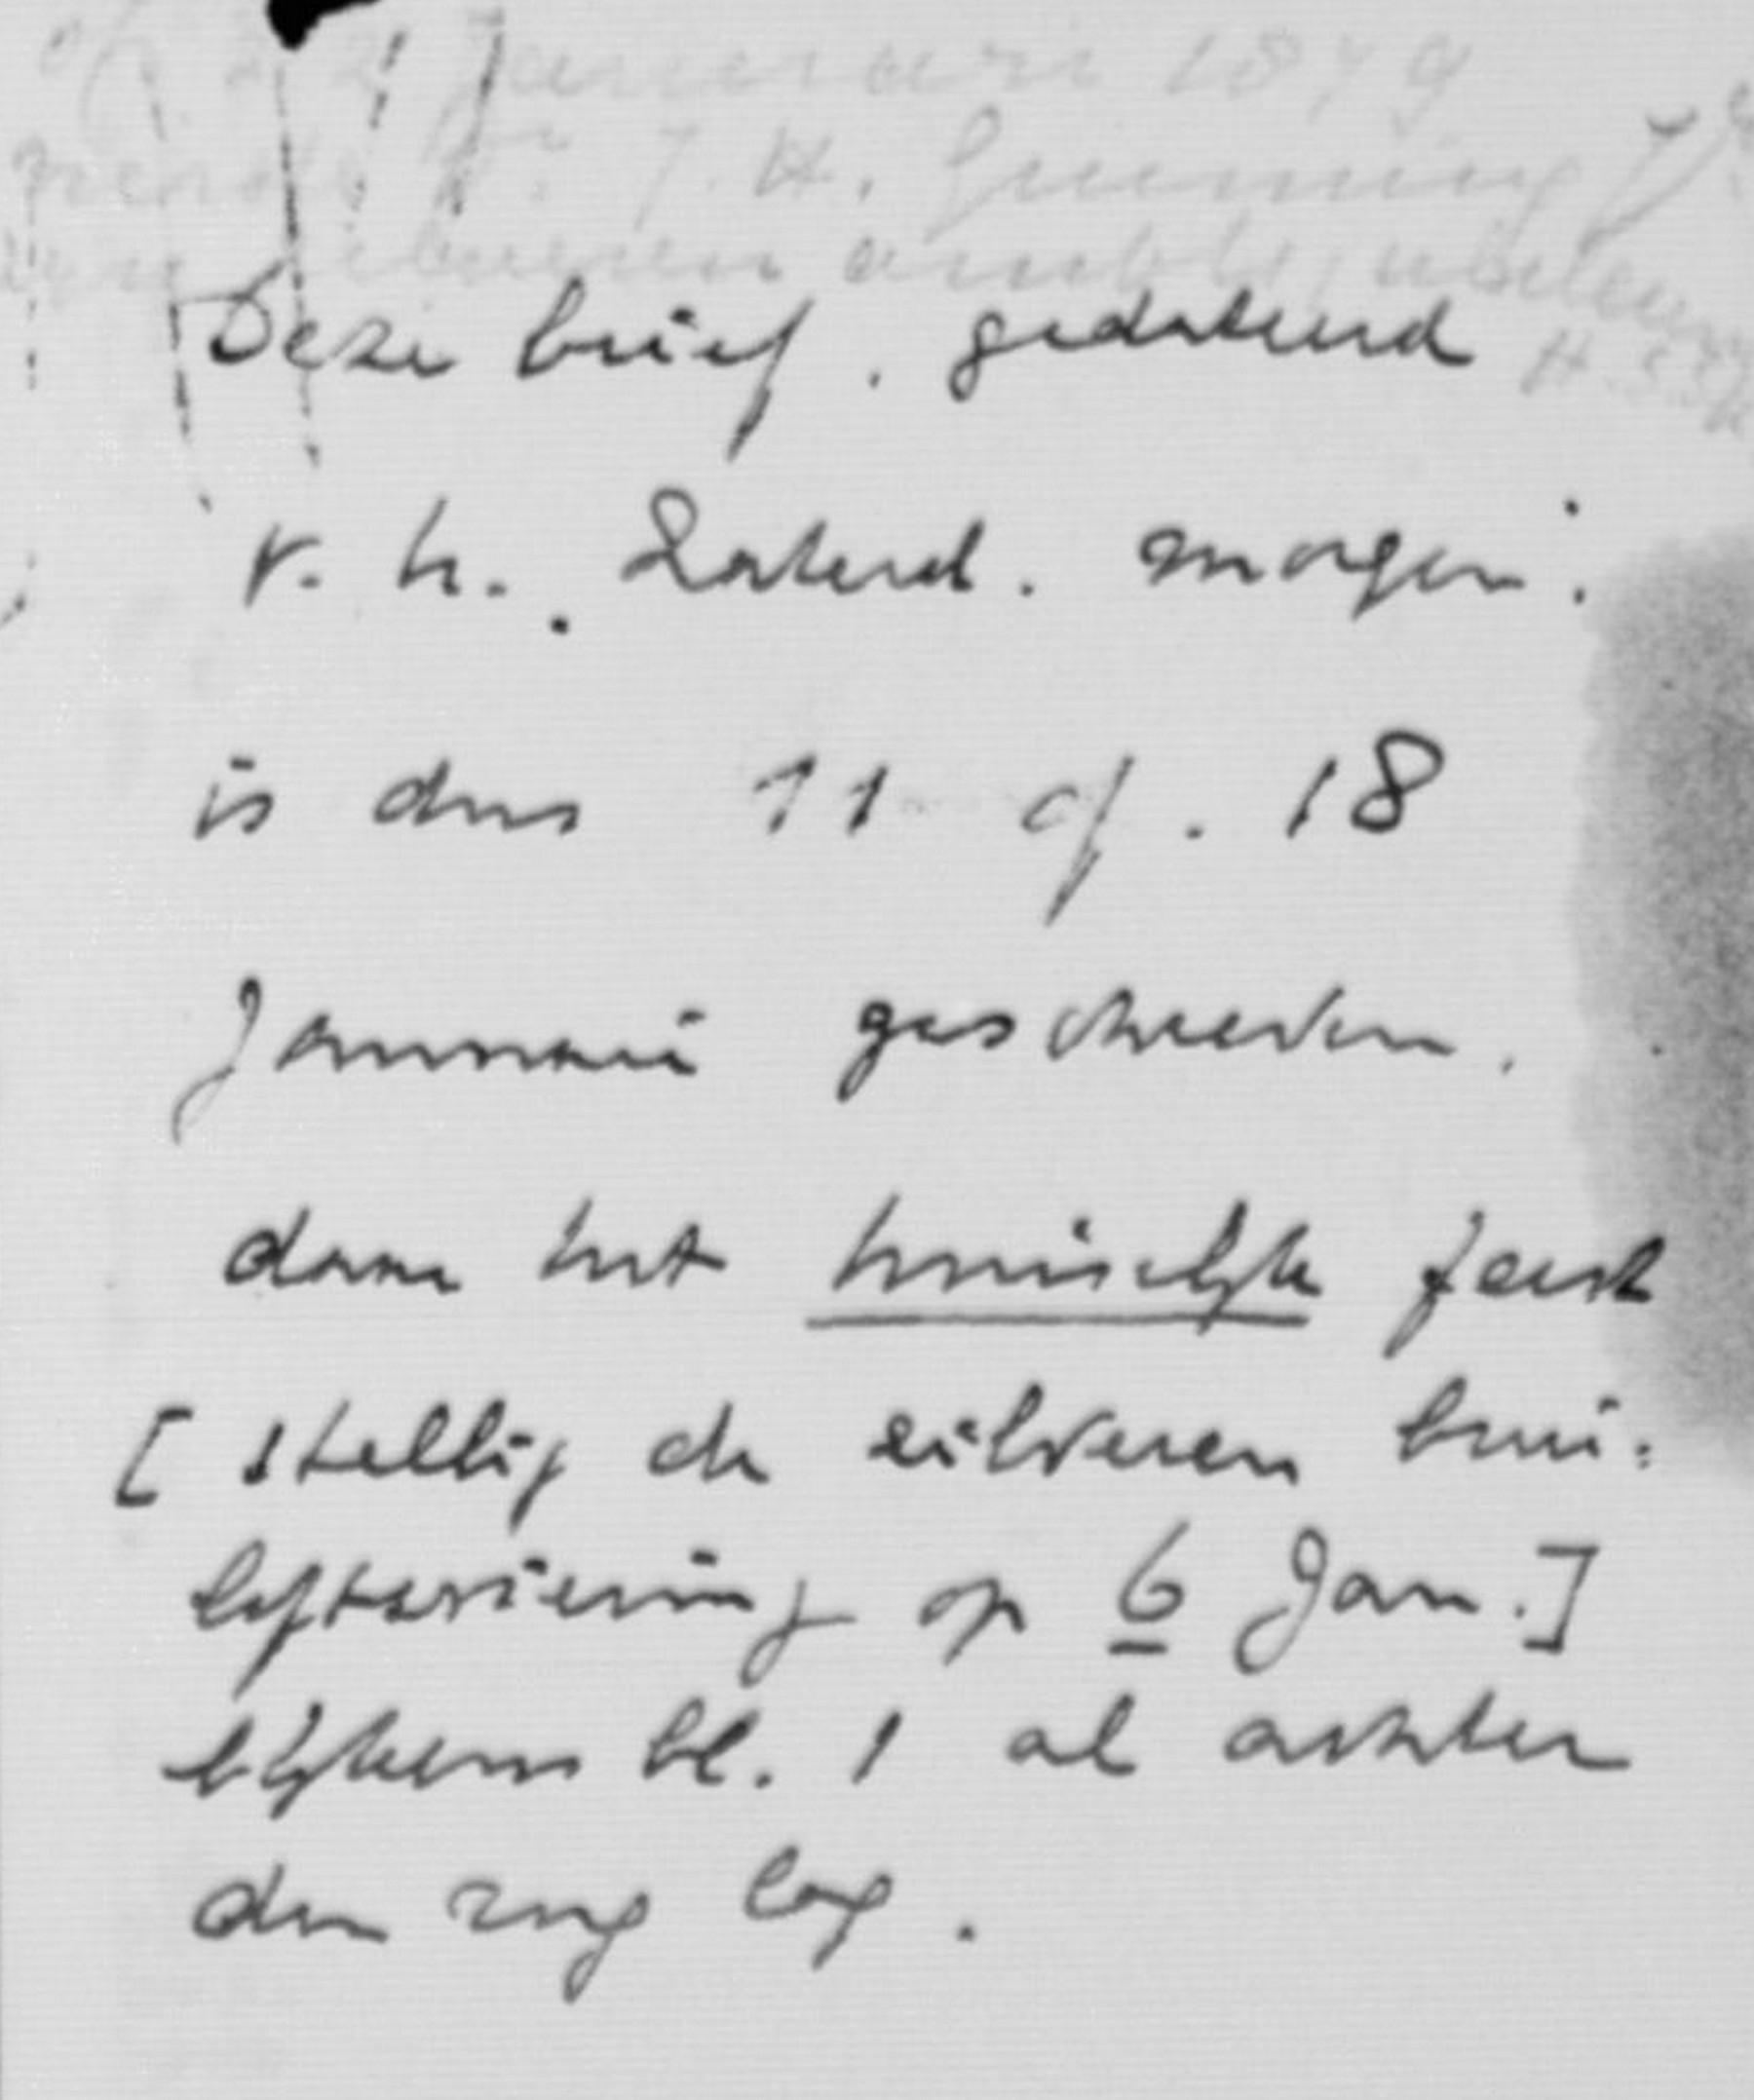 22 Januari 1879
J. H. Gunning Jr
Deze brief, gedateerd
v. h. Zaterd. morgen.
is dus 11 of. 18
Januari geschreven,
daar het huiselyke feest
[stellig de zilveren brui:
loftsviering op 6 Jan.]
blijkens bl. 1 al achter
den rug lag.